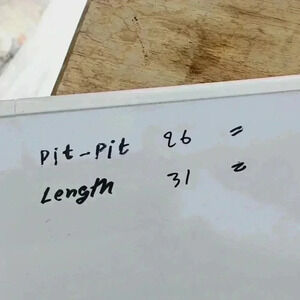 Pit-Pit 26 "
Length 31 "